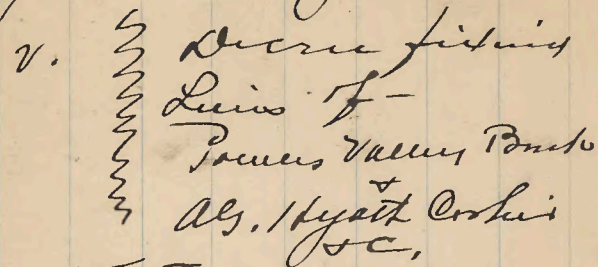 v. Decree fixing
Liens of -
Powells Valley Bank
&
Als. Hyatt Cashier
&C.